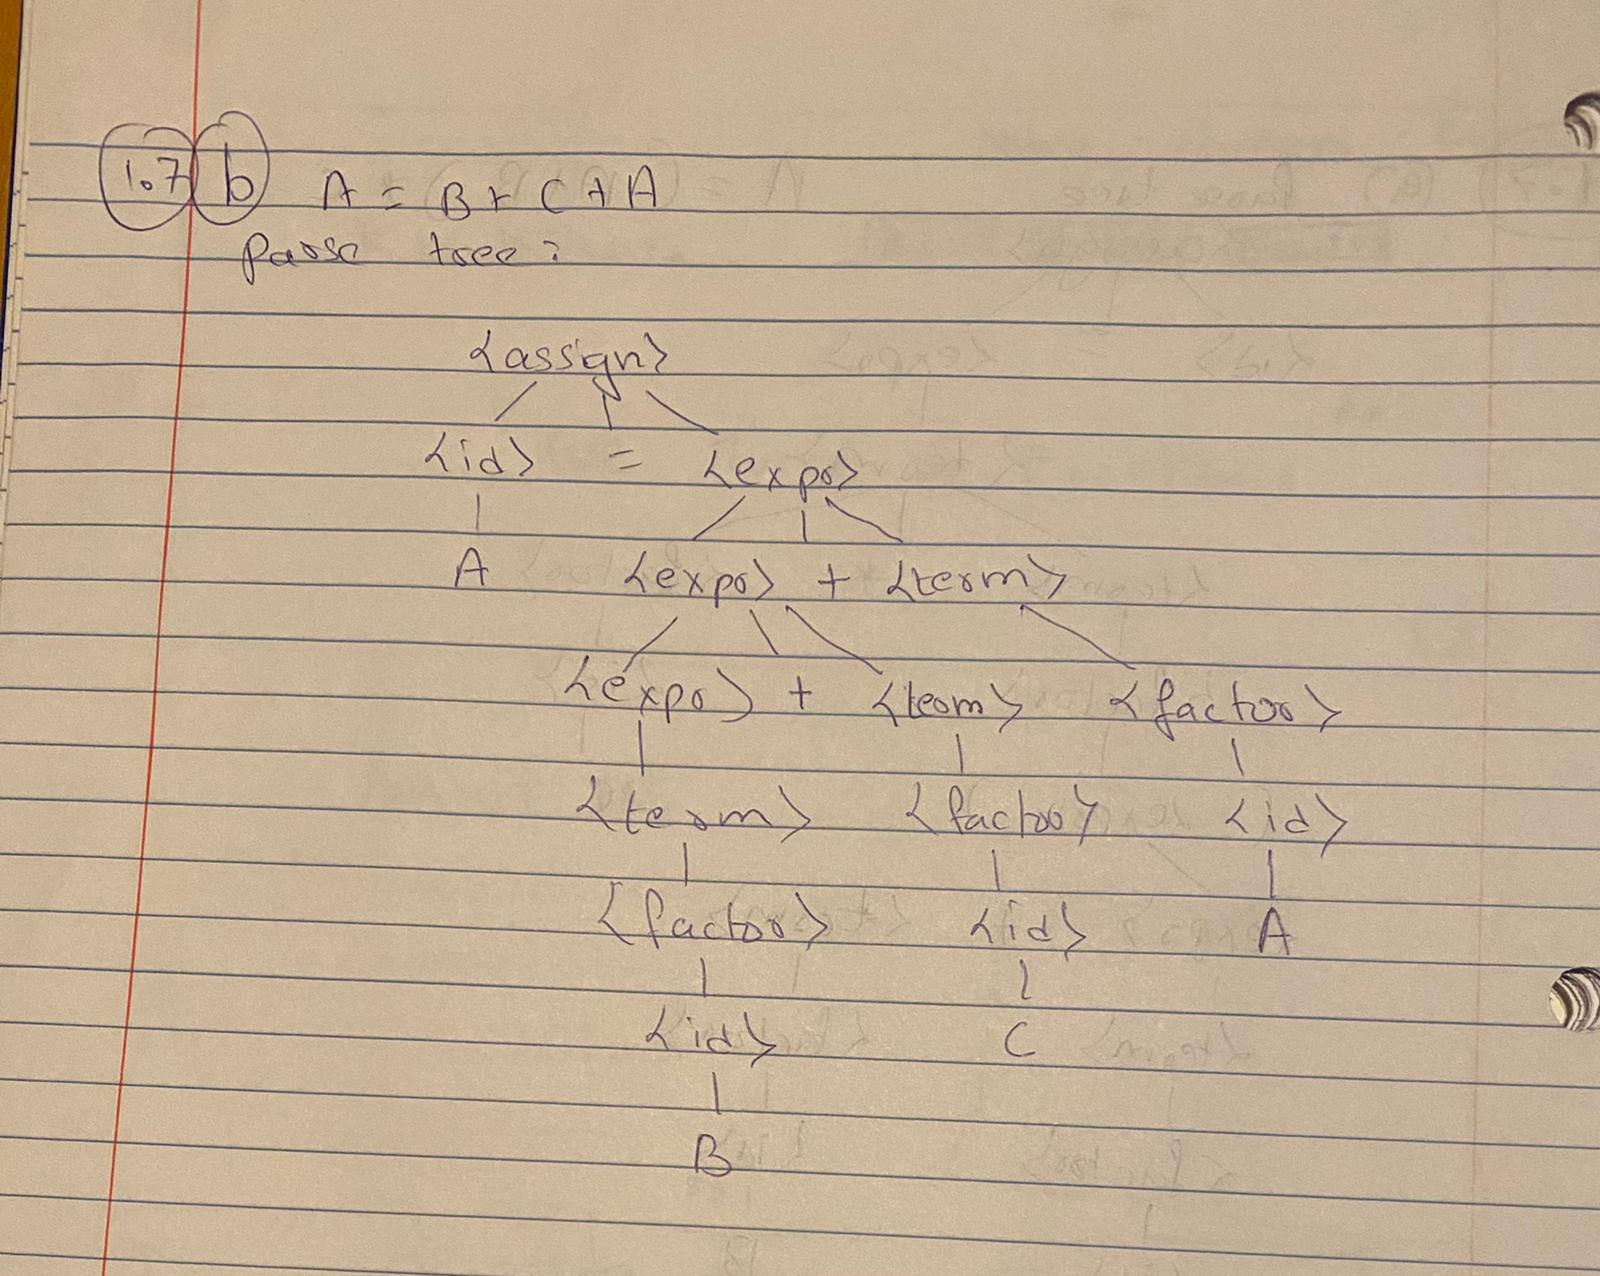 1.7 b A = B + C + A
Parse tree :
<assign>
<id> = <expr>
A <expr> + <term>
<expr> + <term> <factor>
<term> <factor> <id>
<factor> <id> A
<id> C
B